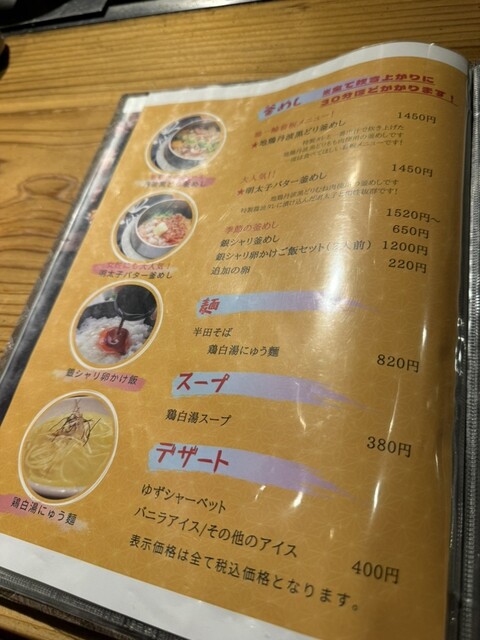 釜めし
生米で炊き上がりに
30分ほどかかります!
1450円
★地鶏丹波黒どり釜めし
1450円
大人気!!
★明太子バター釜めし
季節の釜めし 1520円~
銀シャリ釜めし 650円
銀シャリ卵かけご飯セット(人前) 1200円
追加の卵 220円
明太子バター釜めし
銀シャリ卵かけ飯
鶏白湯にゅう麺
麺
半田そば
鶏白湯にゅう麺 820円
スープ
鶏白湯スープ 380円
デザート
ゆずシャーベット
バニラアイス/その他のアイス 400円
表示価格は全て税込価格となります。